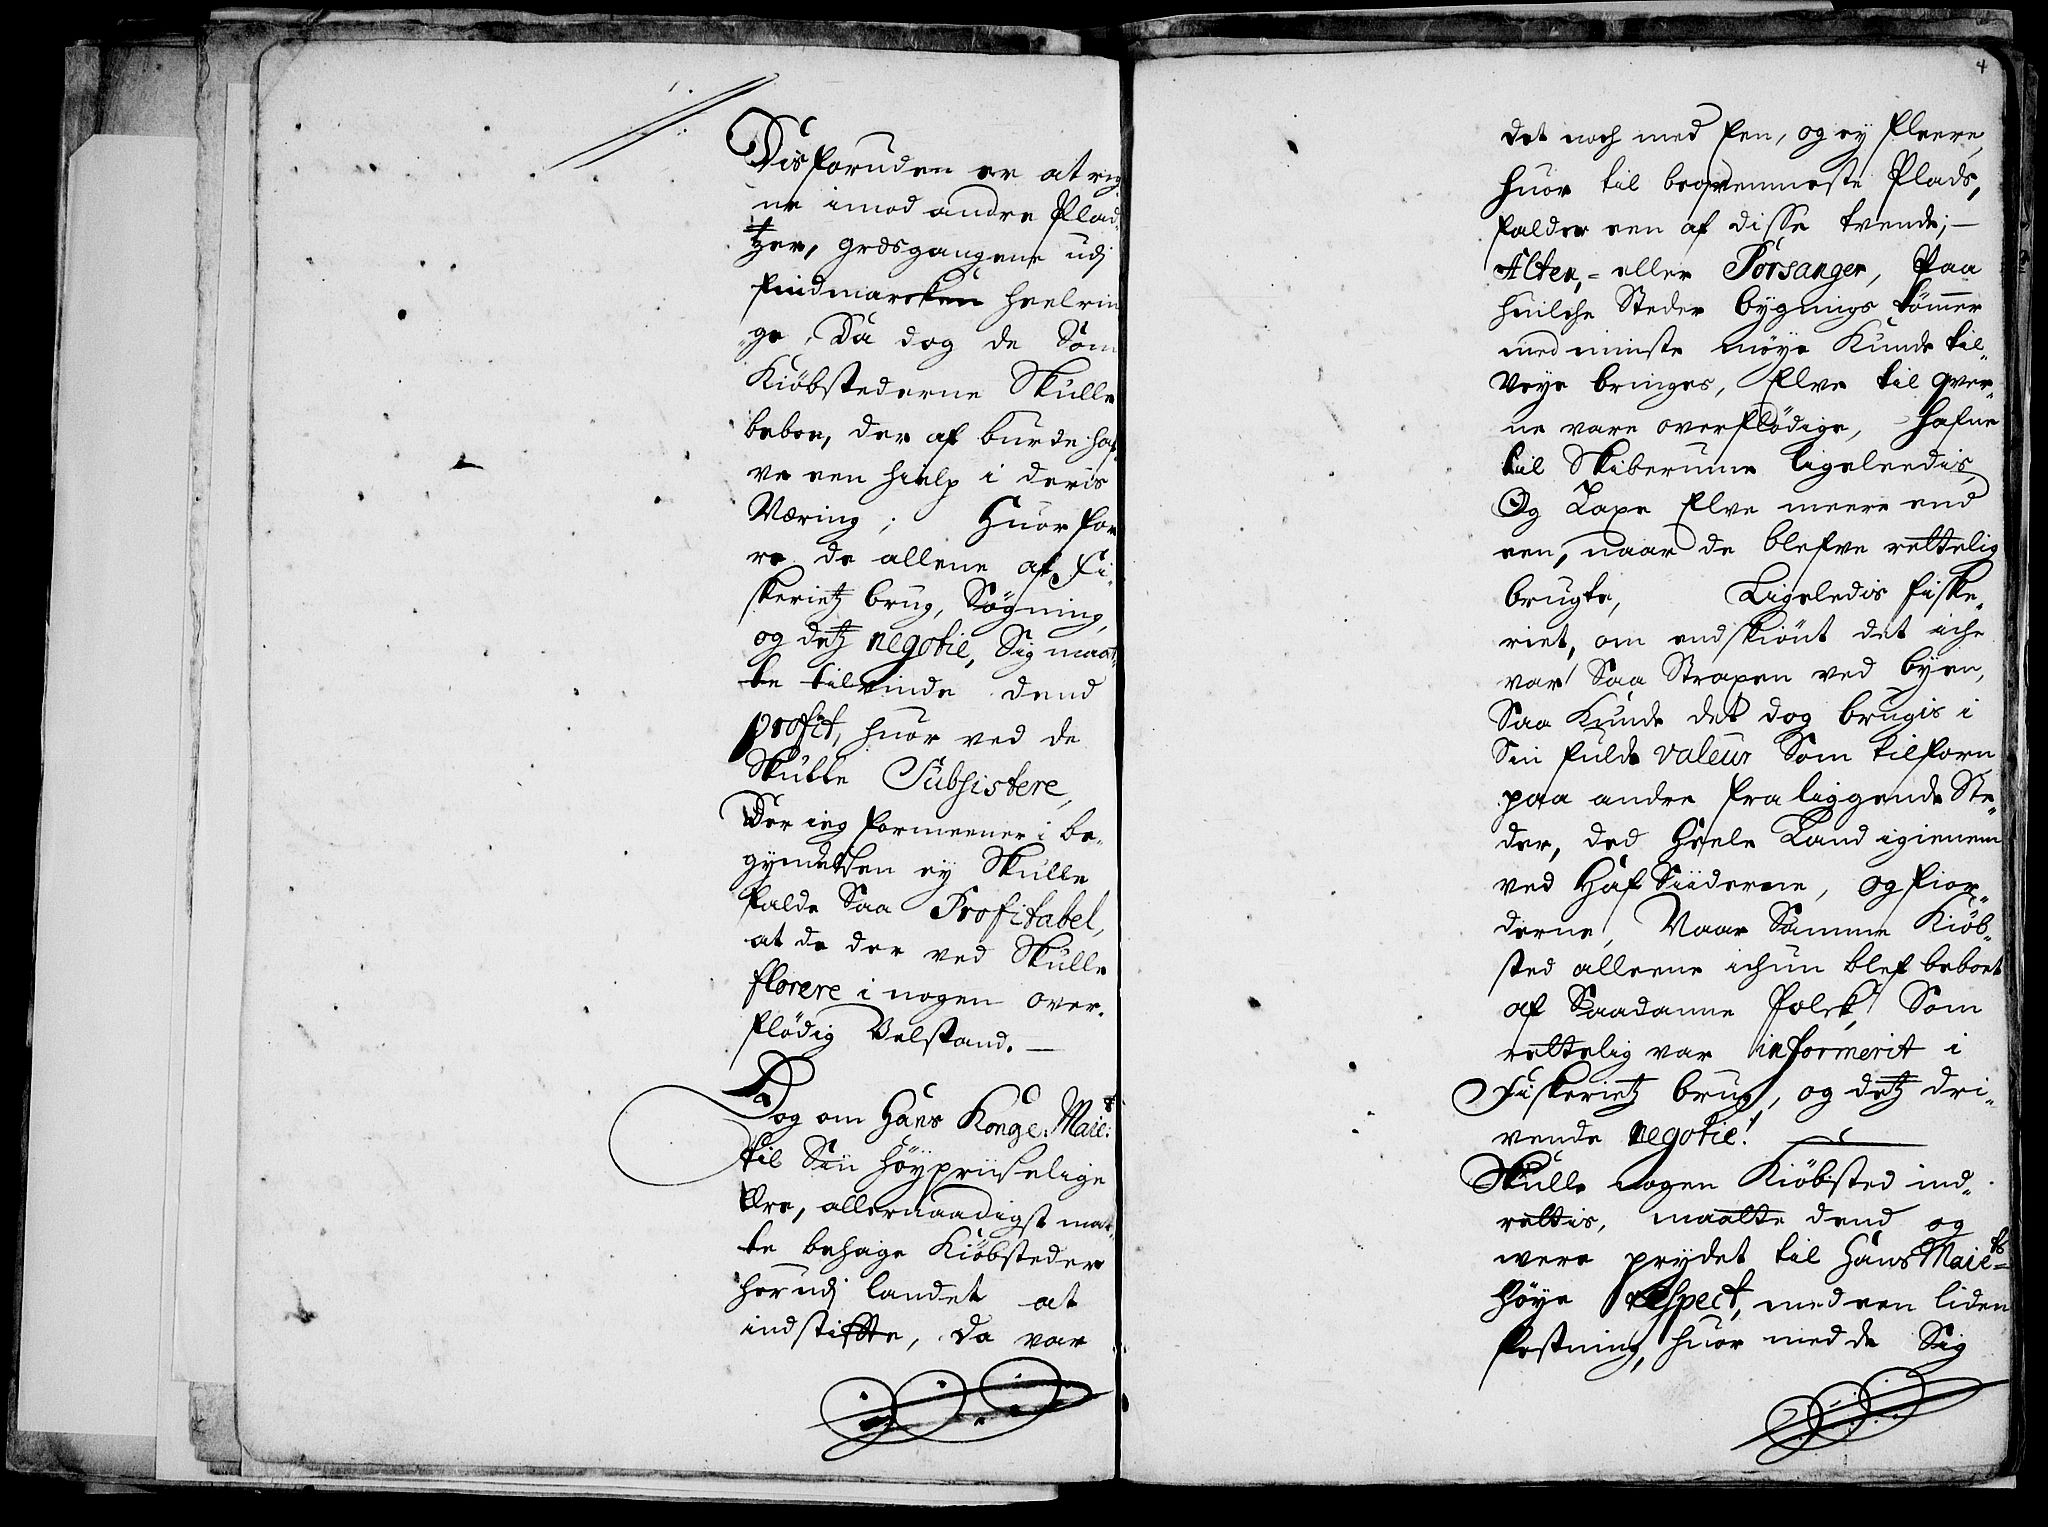 Disforuden er at reg
ne imod andre Plad-
tzer, græsgangene udj
findmarcken heel rin
ge, Da dog de Som
Kiöbstederne Skulle
beboe, der af burde haf-
ve een hielp i deris
Næring; Huor for
re de allene af Fi-
skerietz brug, Søgning,
og detz negotie, Sig maat-
te tilvinde dend
profit, huor ved de
Skulle Subsistere,
Der ieg formeener i be-
gyndelsen ey Skulle
falde Saa Profitabel,
at de der ved Skulle
florere i nogen over-
flödig Velstand. —
Dog om Hans Konge: Maie:t
til Sin Höypriiselige
Ære, allernaadigst maat-
te behage Kiöbsteder
her udj landet at
indstifte, da var
4
det noch med Een, og ey fleere,
huor til beqvemmeste Plads,
falder een af disse tvende; —
Alten,= eller Porsanger, Paa
huilche Steder bygnings tömmer
med minste möye Kunde til-
veye bringes, Elve til qver-
ne vare overflödige, Hafne
til Skiberumme ligeleedis,
Og Laxe Elve meere end
een, naar de blefve rettelig
brugte, Ligeledis fiske-
riet, om endskiönt det iche
var Saa Straxen ved byen,
Saa Kunde det dog brugis i
Sin fulde valeur Som tilforn
paa andre fra liggende Ste-
der, ded Heele Land igienem
ved Haf Siiderne, og fior-
derne, Naar Samme Kiöb-
sted alleene ichun blef beboet
af Saadanne Folck, Som
rettelig var informerit i
Fiskerietz brug, og detz dri-
vende negotie! —
Skulle nogen Kiöbsted ind-
rettis, maatte dend og
were prydet til Hans Maie:ts
Höye respect, med een liden
festning, huor med de Sig